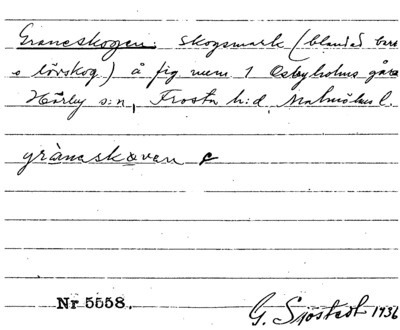 Graneskogen: Skogsmark (blandad barr
o lövskog) å fig num 1 Osbyholms gård
Hörby s:n, Frosta h:d, Malmöhus l.
gränaskåvan
Nr 5558.
G. Sjöstedt 1936